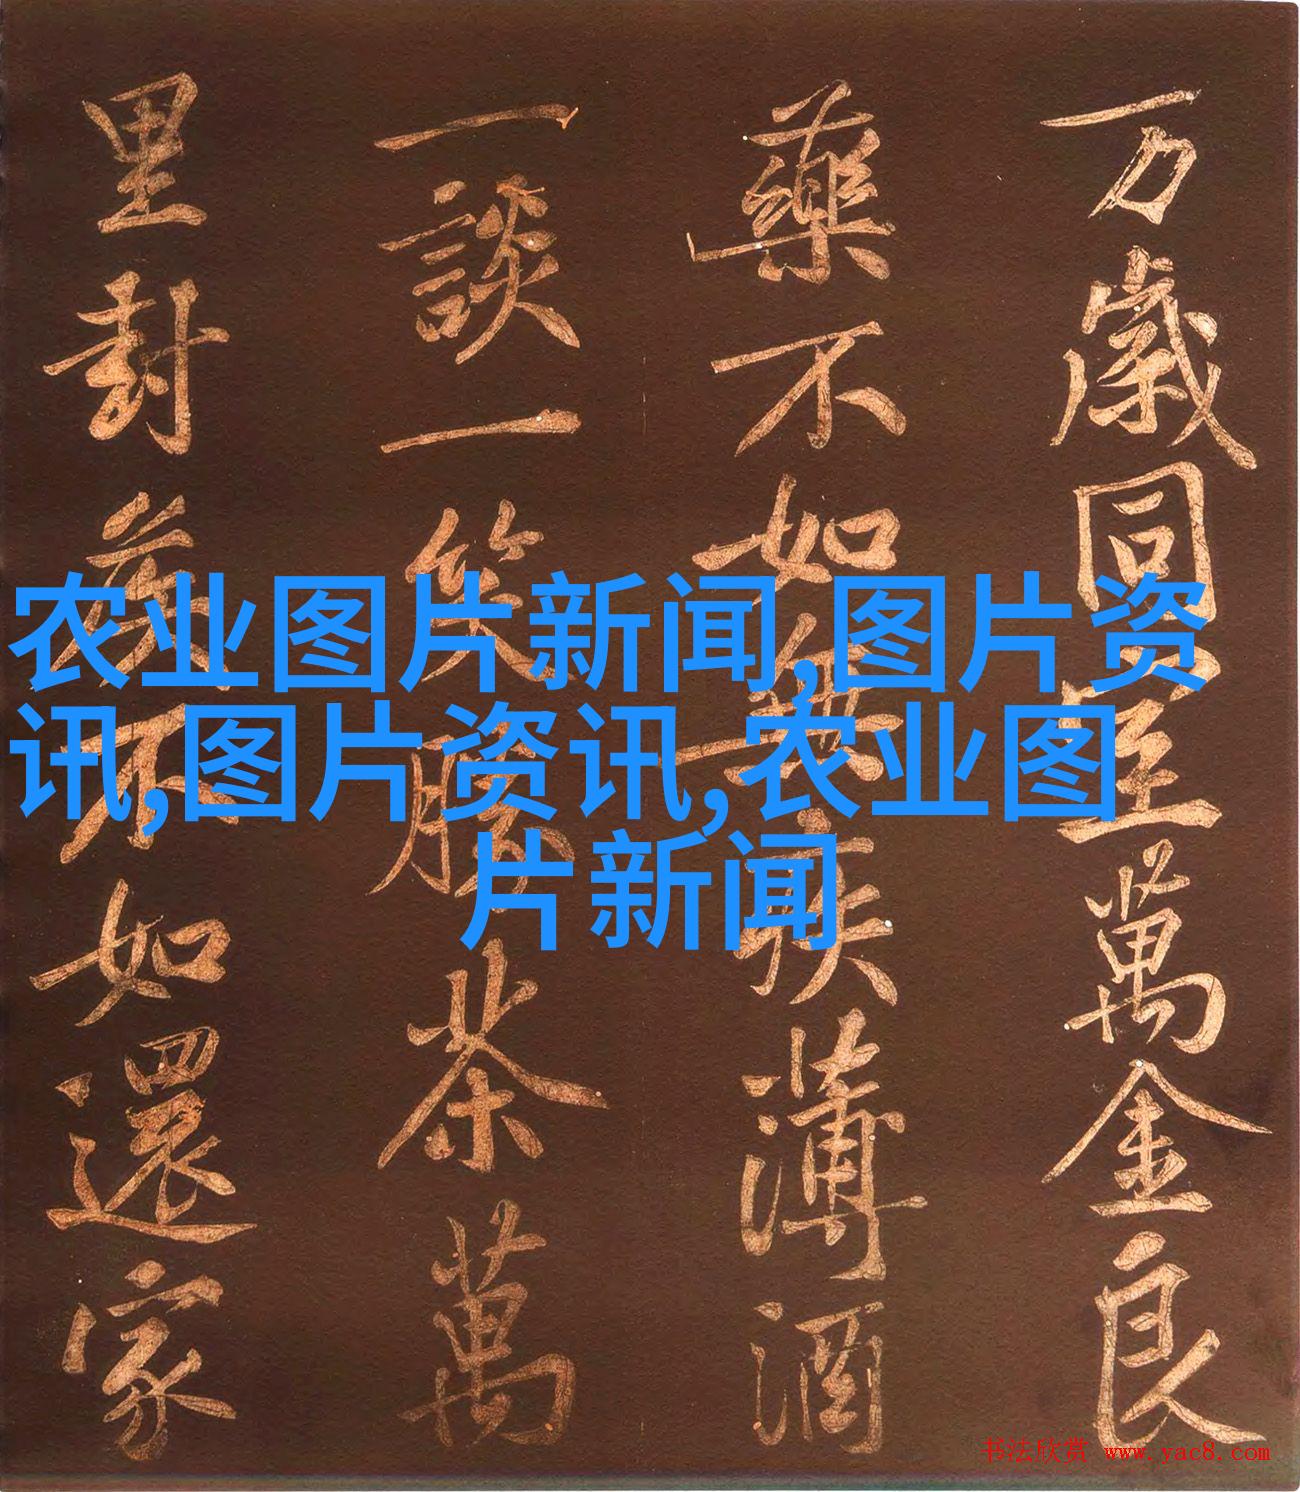 万歲同室萬金良
藥不如無疾薄酒
一談一笑勝茶萬
里封侯不如還家
农业图片新闻,图片资
讯,图片资讯,农业图
片新闻
书法欣赏 www.yac8.com